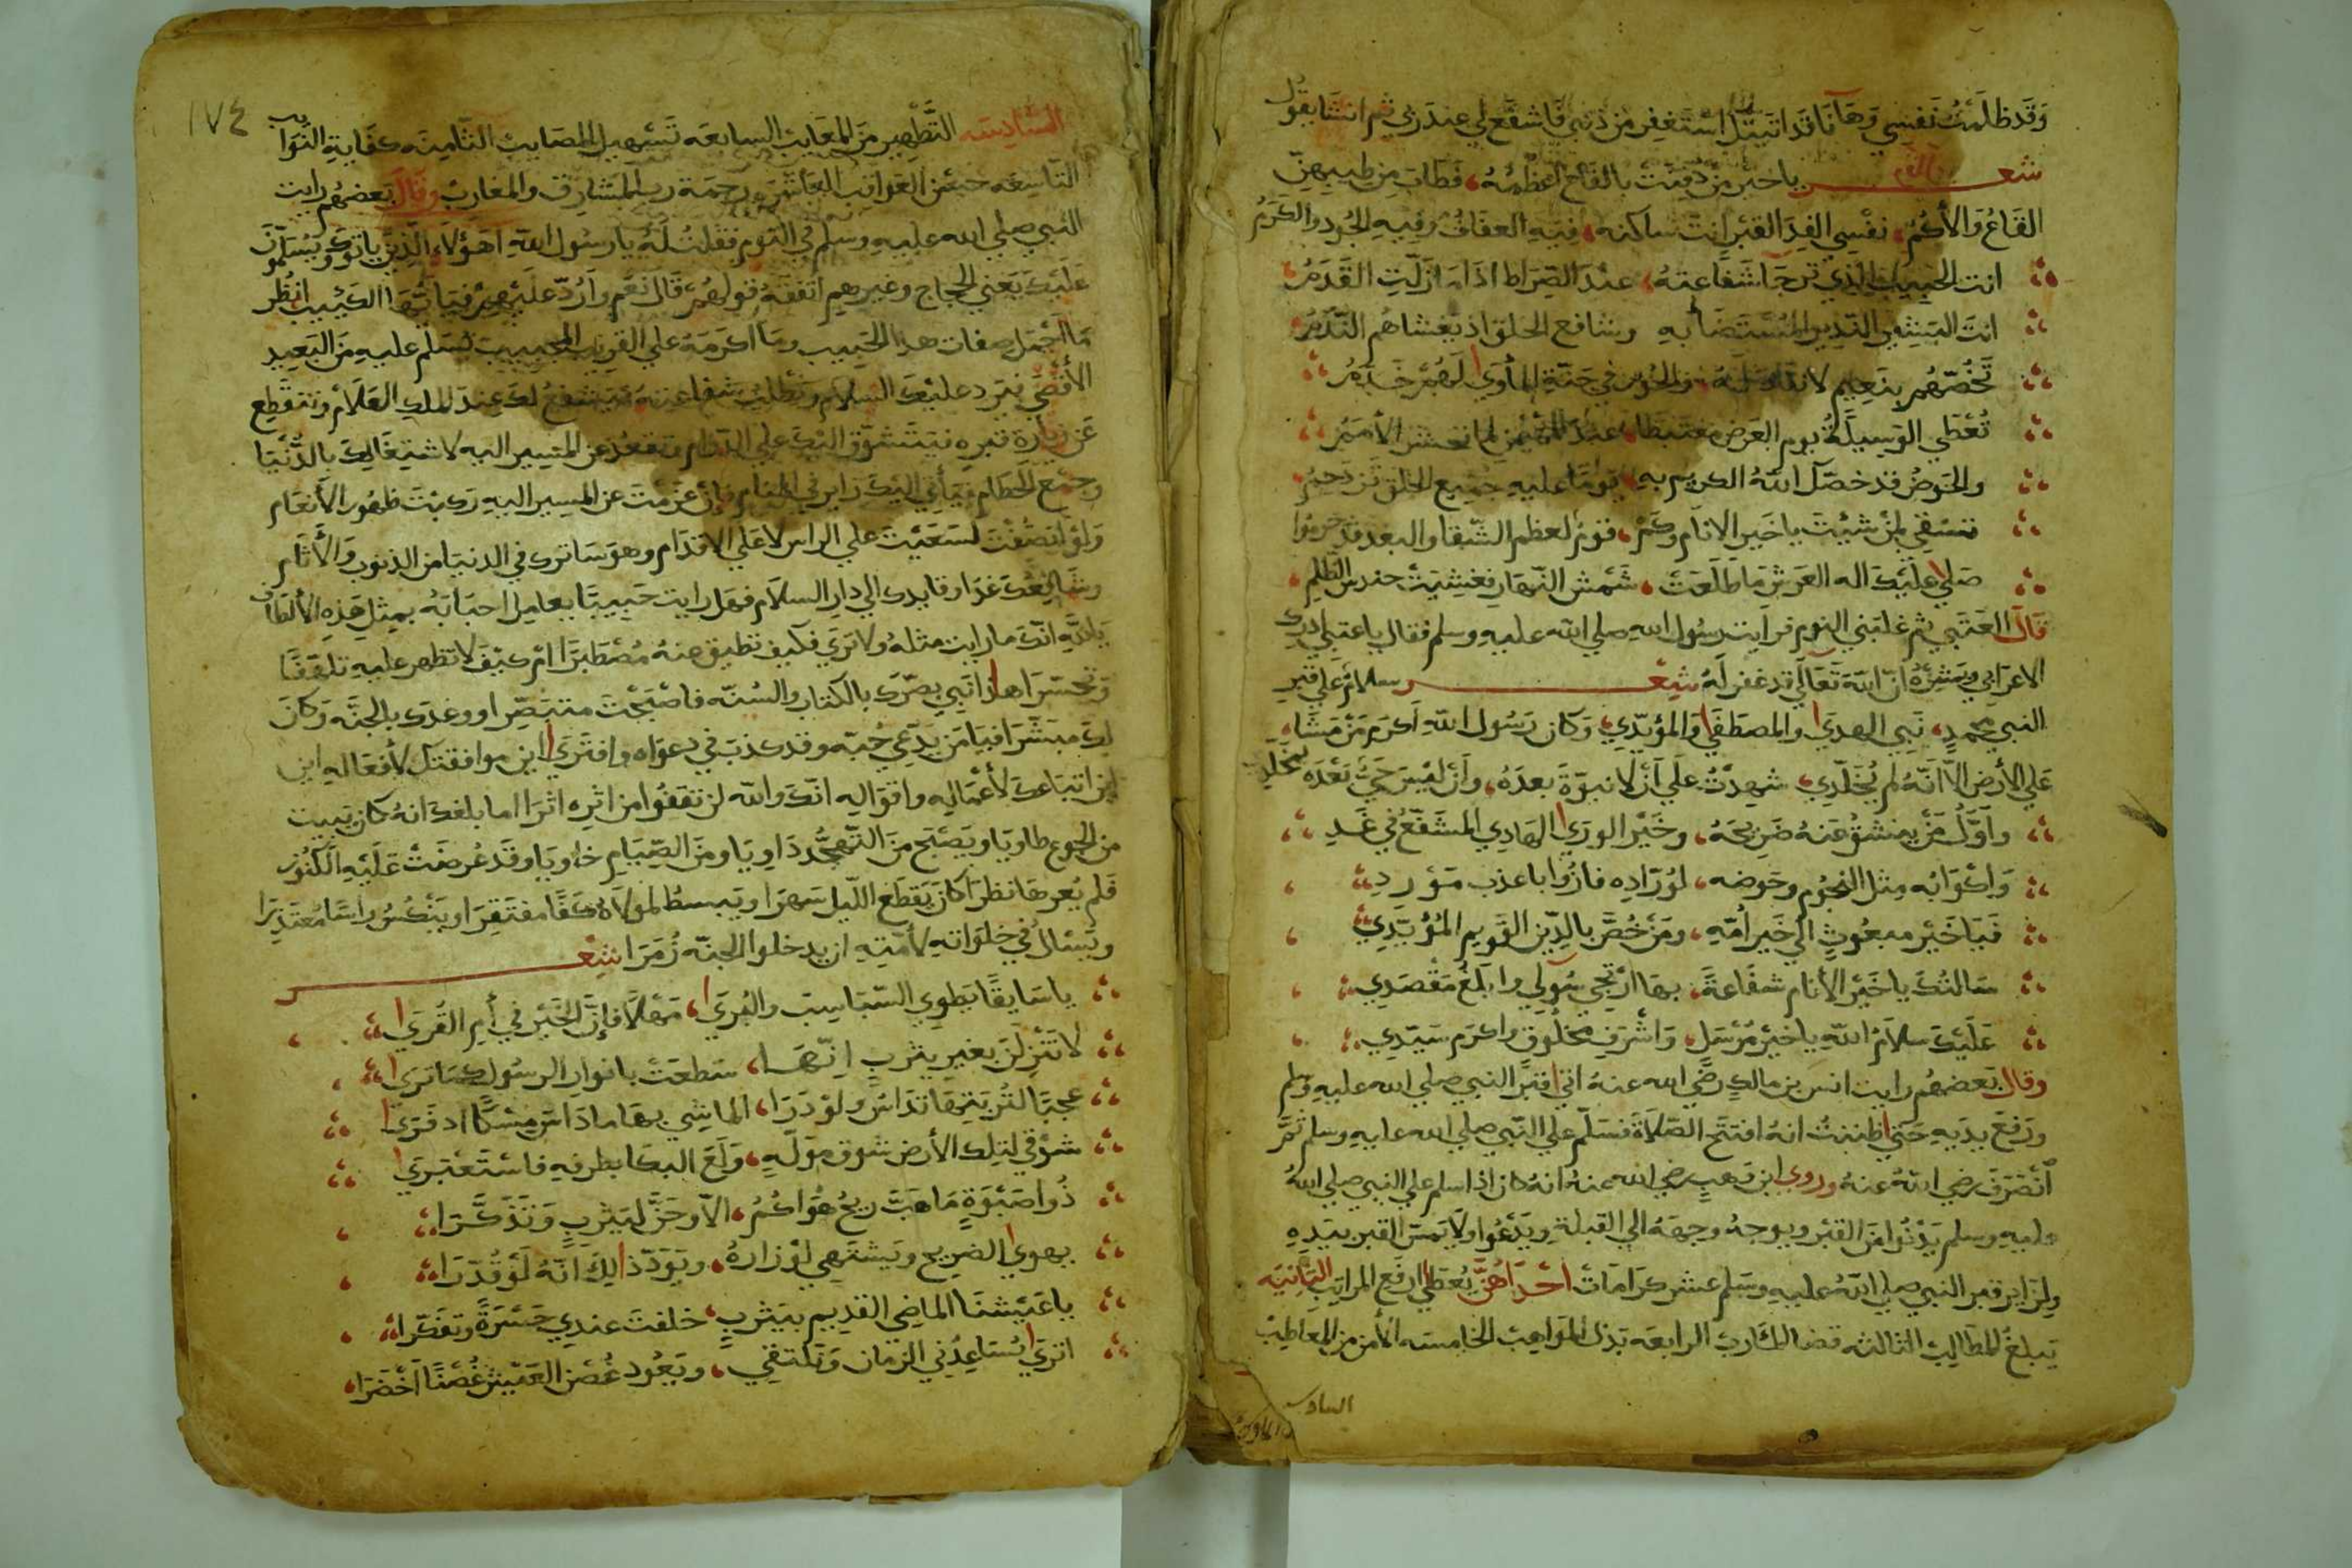 وَقَد ظَلَمْتُ نَفسِي وَهَا أنَا قَد اتَيتكَ اسْتَغفِر مِن ذَنبي فَاشفَع لي عِندَ رَبي ثم انشَا يقُول
شعـــر يا خير مَن دُفِنَتْ بالقَاع أعظُمُهُ، فَطَابَ مِن طيبهنّ
القَاعُ وَالأكُمُ، نفْسِي الفِدَا لقبْرٍ انتَ ساكنه، فِيَهِ العفَافُ وَفِيهِ الجُود والكَرَمُ
انت الحَبِيبُ الّذِي تُرجَا شَفاعتهُ، عندَ الصِّرَاط اذَا مَا زَلّتِ القَدَمُ
انتَ البَشيْر النّذِير المُسْتَضَا بهِ وشافع الخَلق اذ يَغشاهُم النّدَمُ
تَخُصّهُم بنَعِيمٍ لا نفَادَ لَهُ، وَالحُورُ في جَنّةِ المأوَى لَهُمْ خَدَمُ
تُعْطَي الوَسِيلَةُ يوم العَرض مغتَبطًا، عندَ المُهَيْمنِ لما تحشَر الأمَمُ
والحَوضُ قد خصّكَ اللهُ الكريم بهِ، يَومًا عليهِ جَمِيع الخَلق تَزدَحِمُ
تسْقي لمَنْ شيْتَ يا خَير الانام وكَمْ، قَومٌ لعظم الشّقا والبعد قد حرموا
صَلي عليْكَ اله العَرش مَا طَلَعَتْ، شَمْسُ النّهَارِ فغشيَتْ حندس الظلم،
قَالَ العُتْبي ثم غلبَني النوم فرَايت رسُول الله صلي الله عليهِ وسلم فقال يا عتبي ادرك
الاعرَابي وبَشّرْهُ انّ اللهَ تَعَالَي قد غفر لَهُ شِعْـــر سلامٌ عَلي قبْرِ
النبي محمدٍ، نَبي الهدَي والمصطَفَي وَالمؤيّدِي، وَكان رَسُول اللهِ اكرَم مَنْ مَشَا،
عَلي الأرض الاّ انّهُ لم يُخَلّدِي، شهِدْتُ علَي أنْ لا نبوّةَ بعدَهُ، وَأنْ ليْسَ حَيٌّ بَعْدَهُ بمخلّدِ
وَاوّلُ مَنْ ينشقّ عَنهُ ضَرِيحَهُ، وخَيْر الورَي الهَادِي المشَفّعُ في غَدِ
وَاكْوَابُه مِثل النجُوم وحَوضه، لورّادِه فازُوا باعذب مَوْرِدِ
فَيَا خَيْر مَبعُوثٍ الي خَير أمّةٍ، ومَنْ خُصَّ بالدِّينِ القَوِيم المُؤَيّدِي
سَالتُكَ يا خَيْر الأنام شفَاعةً، بهَا ارْتجي سُولي وابلغُ مَقْصَدِي
عَلَيْكَ سلاَمُ اللهِ يا خيْر مُرْسَلٍ، وَاشْرَفِ مخلُوقٍ واكرَم سَيّدِي
وقال بَعضهُم رايت انس بن مالك رضَي الله عنهُ اتَي قَبْرَ النبي صلي الله عليهِ وسلم
ورَفعَ يدَيه حَتي ظننتُ انهُ افتتَح الصّلاَةَ فسَلّم عَلي النّبي صلي الله عليهِ وسلم ثمّ
انْصَرَفَ رضي اللهُ عنهُ وروي ابن وَهبٍ رضي الله عنهُ انهُ كان اذا سلم علي النبي صلي اللهُ
عليهِ وسلم يَدْنُوا مِنَ القبْر ويوجهُ وجهَهُ الي القبلَةِ ويَدْعُوا ولا يَمسّ القبر بيَدِهِ
ولزَاير قبر النبي صلي اللهُ عليهِ وسَلم عشر كرَامَات احْدَاهُنَّ يُعْطَي ارفَع المراتِبِ الثانِيَه
يَبلغُ المطَالِبْ الثالثه قضا المآرِبْ الرابعَه بَذل المَوَاهِبْ الخامسَه الأمن من المعَاطِبْ
السادسه
١٧٤
السّادِسَه التّطْهِير مِنَ المَعَايبْ السابعَه تَسْهِيل المصَايبْ الثامِنَه كفَاية النَوَايب
التّاسِعَه حُسْن العَوَاقِب العَاشرَه رَحمَة ربّ المشَارِق والمغَارِبْ وقَالَ بَعضهُم رايت
النبي صلي الله عليهِ وسلم في النّوم فقُلتُ لَهُ يا رسُول اللهِ اهَؤلاء الّذِينَ ياتونَكَ ويُسَلّمُونَ
عَلَيْكَ يَعني الحُجاج وغيرهم اتَفْقَهُ قَولَهُمْ قَال نَعَم وَارُدّ علَيْهِمْ فيَا أيّهَا الكَئيب انظُر
مَا اجْمَل صِفات هذا الحَبيب ومَا اكرَمَهُ عَلي القَرِيبِ المجيبِ تُسَلم عليهِ مِن البَعِيدِ
الأقصَي فيَردّ عليْكَ السلاَم وتَطلبُ شفاعتهُ فيشفعُ لكَ عندَ الملك العَلاَّم وتنقطِع
عَن زيَارة قبره فيَتَشوّق اليْكَ علي الدّوام وتقعُد عن المَسِير اليهِ لاشتِغَالكَ بالدُّنيَا
وجَمْع الحُطام فيَأتي اليْكَ زايرًا في المنَام فَإنْ عَزَمْتَ عن المسِير اليهِ رَكبْتَ ظهُور الأنعَام
وَلَوْ انصَفْتَ لسَعَيْتَ علي الراس لا عَلي الاقدَام وهوَ سَاترك في الدنيَا من الذنوب وَالأثَام
وشَافِعُكَ غدًا وقايدك الي دَارِ السلاَم فهَل رايت حَبيبًا يعَامِل احبَابَهُ بمِثلِ هَذِهِ الألطَافِ
يَاللهِ انّكَ ما رايت مثلهُ ولا تَري فكيف تطيق عنهُ مُصْطَبَرًا امْ كيْفَ لا تظهر عليهِ تلَهّفًا
وتحسّرًا هذا نَبي بصّرَكَ بالكتاب والسُنّه فاصْبَحْتَ متبَصّرا ووعدَكَ بالجنَّه وكَانَ
لكَ مبَشّرًا فيَا مَن يَدّعي حُبّه وقد كذبَ في دعوَاه وافتَرَي اين موافقتك لأفعَالهِ اين
اين اتبَاعكَ لأعْمَالِهِ وَاقوَالِهِ انّكَ واللهِ لن تقفوا من اثرِهِ اثرَا اما بلغكَ انهُ كان يَبيت
من الجوع طاويَا ويَصْبَح منَ التّهَجُّدِ ذَاوِيَا ومنَ الصّيَام خَاوِيَا وقَد عُرضَتْ عَلَيْهِ الكنُوز
فَلم يُعرهَا نظرَا كانَ يَقطَع اللّيل سَهرَا ويَبسطُ لمَولاَهُ كَفًّا مفتَقِرَا وينْكسُ رَاسًا مُعتَذِرَا
ويُسْألُ في خلوَاتهِ لأمّتِهِ ان يدخلوا الجنّه زُمَرَا شِعْـــر
يا سَايقًا يَطوِي السّبَاسِبَ والبُرَي، مَهْلاً فإنّ الخَيْر في أم القُرَي
لا تَنْزلَنّ بغَيرِ يَثرب انّهَا، سَطعَتْ بانوارِ الرسُول كمَا تَرَي
عجبًا لتُربَتِهَا تدَاسُ ولَوْ دَرَا، الماشِي بهَا ما دَاسَ مِسْكًا اذفَرَي
شوْقي لتِلك الأرض شوق مولّهٍ، وَلَعَ البكَا بطَرفِهِ فاسْتَعْبَرَي
ذُو صَبْوَةٍ مَا هَبَّ رِيحُ هوَاكُمُ، الاّ وحَنَّ ليَثربٍ وتَذَكَّرَا
يهوي الضرِيح ويَشتَهي لوْ زارهُ، ويَوَدّ ذَالِكَ انّهُ لَوْ قُدّرَا
يا عَيْشنَا الماضي القدِيم بيَثربٍ، خلفتَ عندِي حَسْرَةً وتفَكّرا
اترَي يُسَاعِدُني الزمَان ونَلتَقِي، ويَعُود غُصن العَيْش غُصْنًا أخْضَرَا